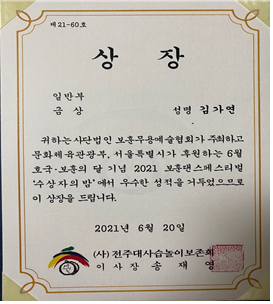 제 21-60호
상 장
일반부
금 상 성명 김가연
귀하는 사단법인 보훈무용예술협회가 주최하고
문화체육관광부, 서울특별시가 후원하는 6월
호국·보훈의 달 기념 2021 보훈댄스페스티벌
'수상자의 밤'에서 우수한 성적을 거두었으므로
이 상장을 드립니다.
2021년 6월 20일
(사) 전주대사습놀이보존회
이사장 송재영